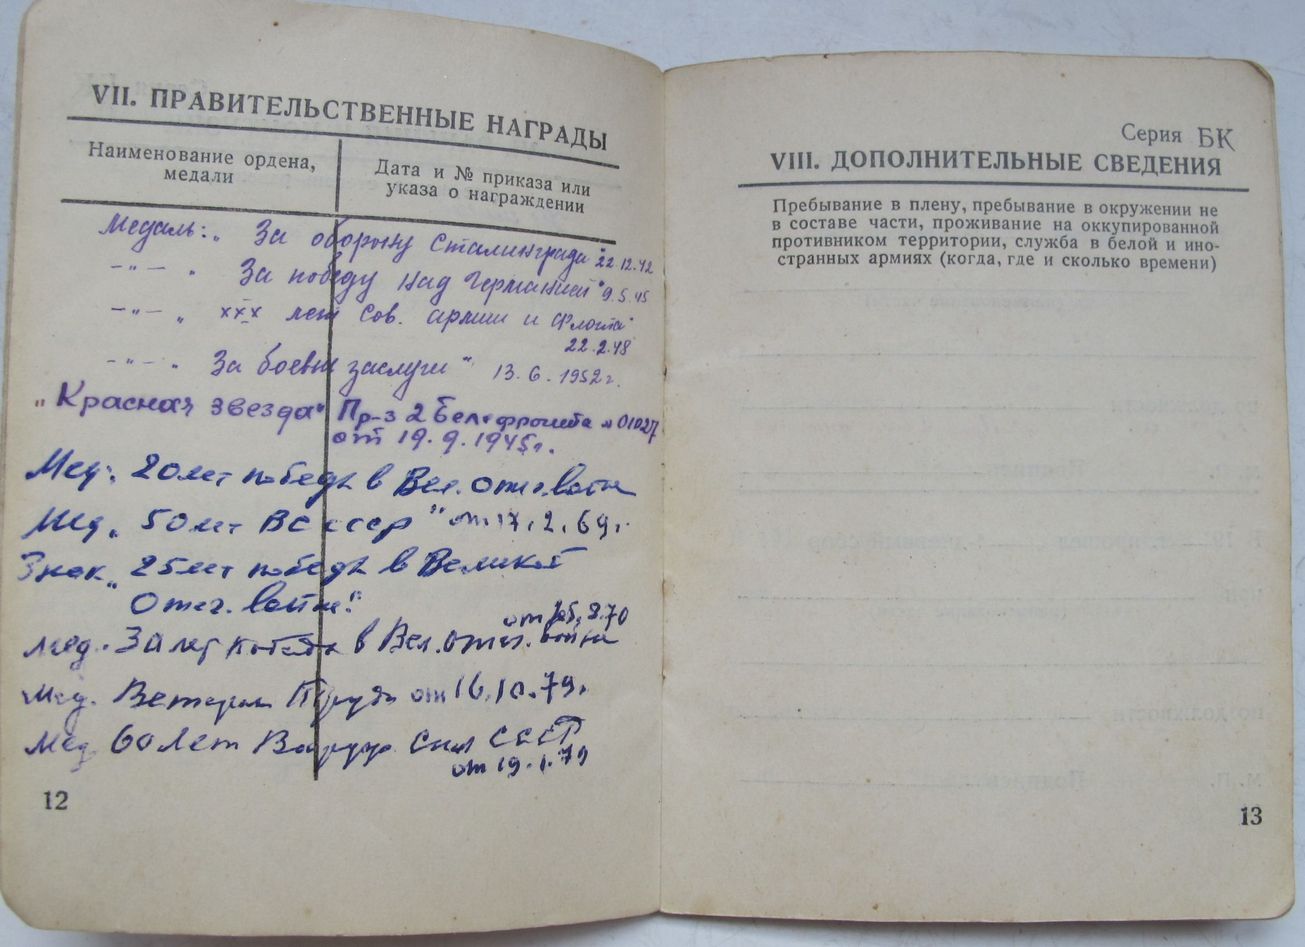 VII. ПРАВИТЕЛЬСТВЕННЫЕ НАГРАДЫ
Наименование ордена,
медали
Дата и № приказа или
указа о награждении
Медаль: „За оборону Сталинграда" 22.12.42
–"– „За победу над Германией" 9.5.45
–"– „XXX лет Сов. армии и Флота"
22.2.48
–"– „За боевые заслуги" 13.6.1952г.
„Красная звезда" Пр-з 2 Бел. фронта № 01027
от 19.9.1945г.
Мед. 20 лет победы в Вел. отеч. войне
Мед „50 лет ВС СССР" от 17.2.69г.
Знак „25 лет победы в Великой
Отеч. войне"
от 8.70
Мед. 30 лет победы в Вел. отеч. войне
Мед. Ветеран Труда от 16.10.79г.
Мед 60 лет Воруж Сил СССР
от 19.1.79
12
Серия БК
VIII. ДОПОЛНИТЕЛЬНЫЕ СВЕДЕНИЯ
Пребывание в плену, пребывание в окружении не
в составе части, проживание на оккупированной
противником территории, служба в белой и ино-
странных армиях (когда, где и сколько времени)
13